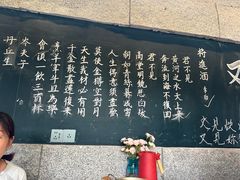 将進酒
李白
君不見
黄河之水天上来
奔流到海不復回
君不見
高堂明鏡悲白髪
朝如青絲暮成雪
人生得意須盡歡
莫使金樽空對月
天生我材必有用
千金散盡還復来
烹羊宰牛且為樂
會須一飲三百杯
岑夫子
丹丘生
又見
又見炊